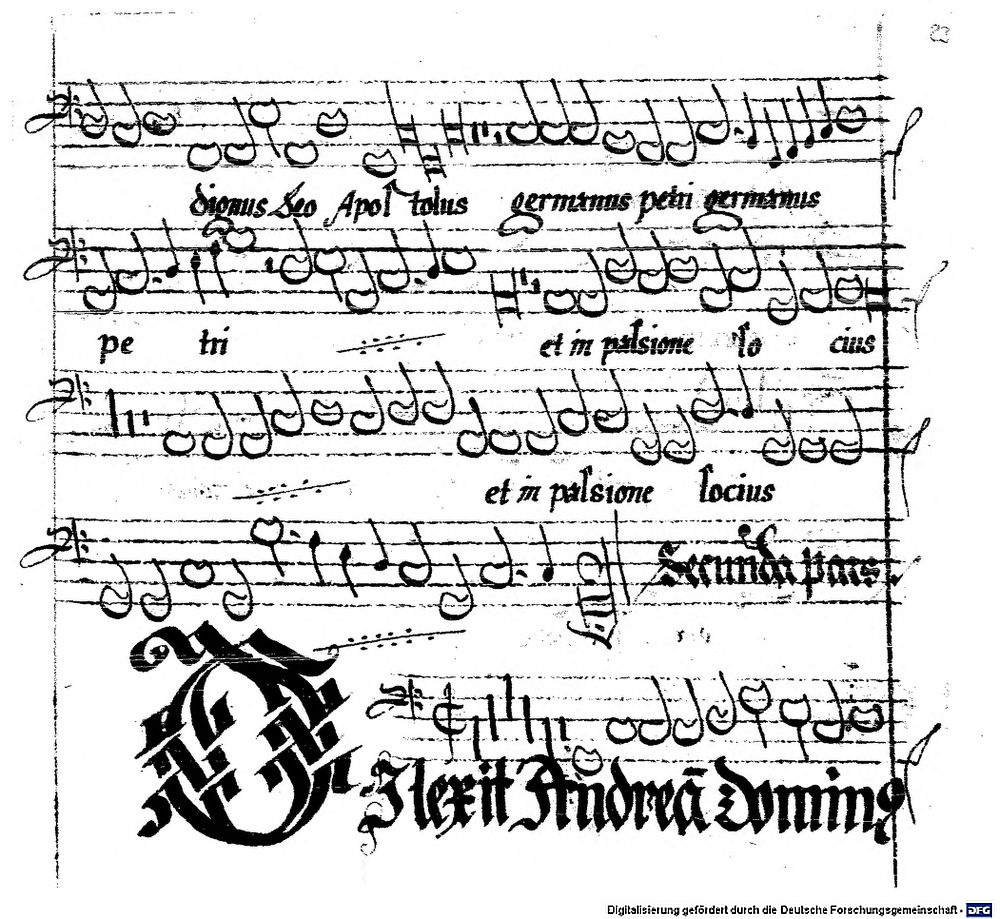 dignus deo Apostolus germanus petri germanus
pe tri et in passione so cius
et in passione socius
Secunda pars
Dilexit Andreā Dominꝰ
Digitalisierung gefördert durch die Deutsche Forschungsgemeinschaft - DFG